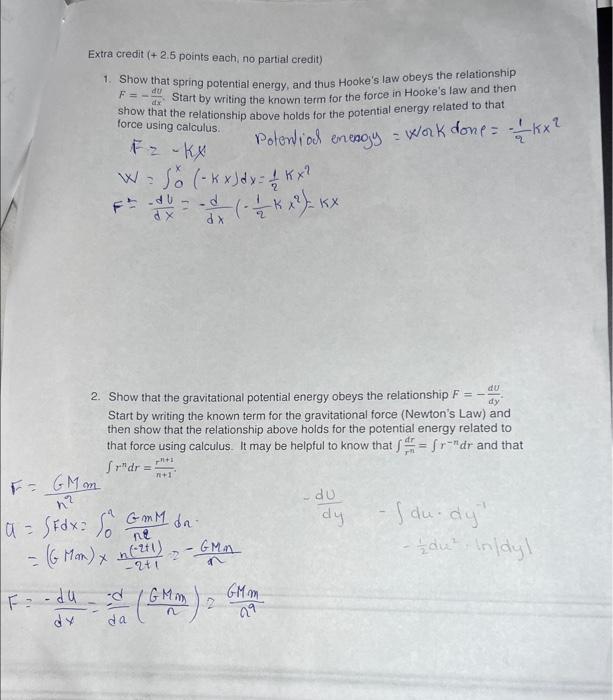 Extra credit (+ 2.5 points each, no partial credit)
1. Show that spring potential energy, and thus Hooke's law obeys the relationship
F = -dU/dx. Start by writing the known term for the force in Hooke's law and then
show that the relationship above holds for the potential energy related to that
force using calculus.
Potential energy = work done = -1/2 Kx²
F = -Kx
W = ∫₀ˣ (-Kx)dx = 1/2 Kx²
F = -dU/dx = -d/dx (-1/2 Kx²) = Kx
2. Show that the gravitational potential energy obeys the relationship F = -dU/dy.
Start by writing the known term for the gravitational force (Newton's Law) and
then show that the relationship above holds for the potential energy related to
that force using calculus. It may be helpful to know that ∫ dr/rⁿ = ∫ r⁻ⁿ dr and that
∫ rⁿdr = rⁿ⁺¹/n+1.
F = GMm/r²
-dU/dy - ∫ du · dy⁻¹
U = ∫Fdx = ∫₀ʳ GmM/r² dr.
- 1/2 du² · ln|dy|
= (GMm) × r(-2+1)/-2+1 = -GMm/r
F = -du/dx = -d/da (GMm/r) = GMm/r²